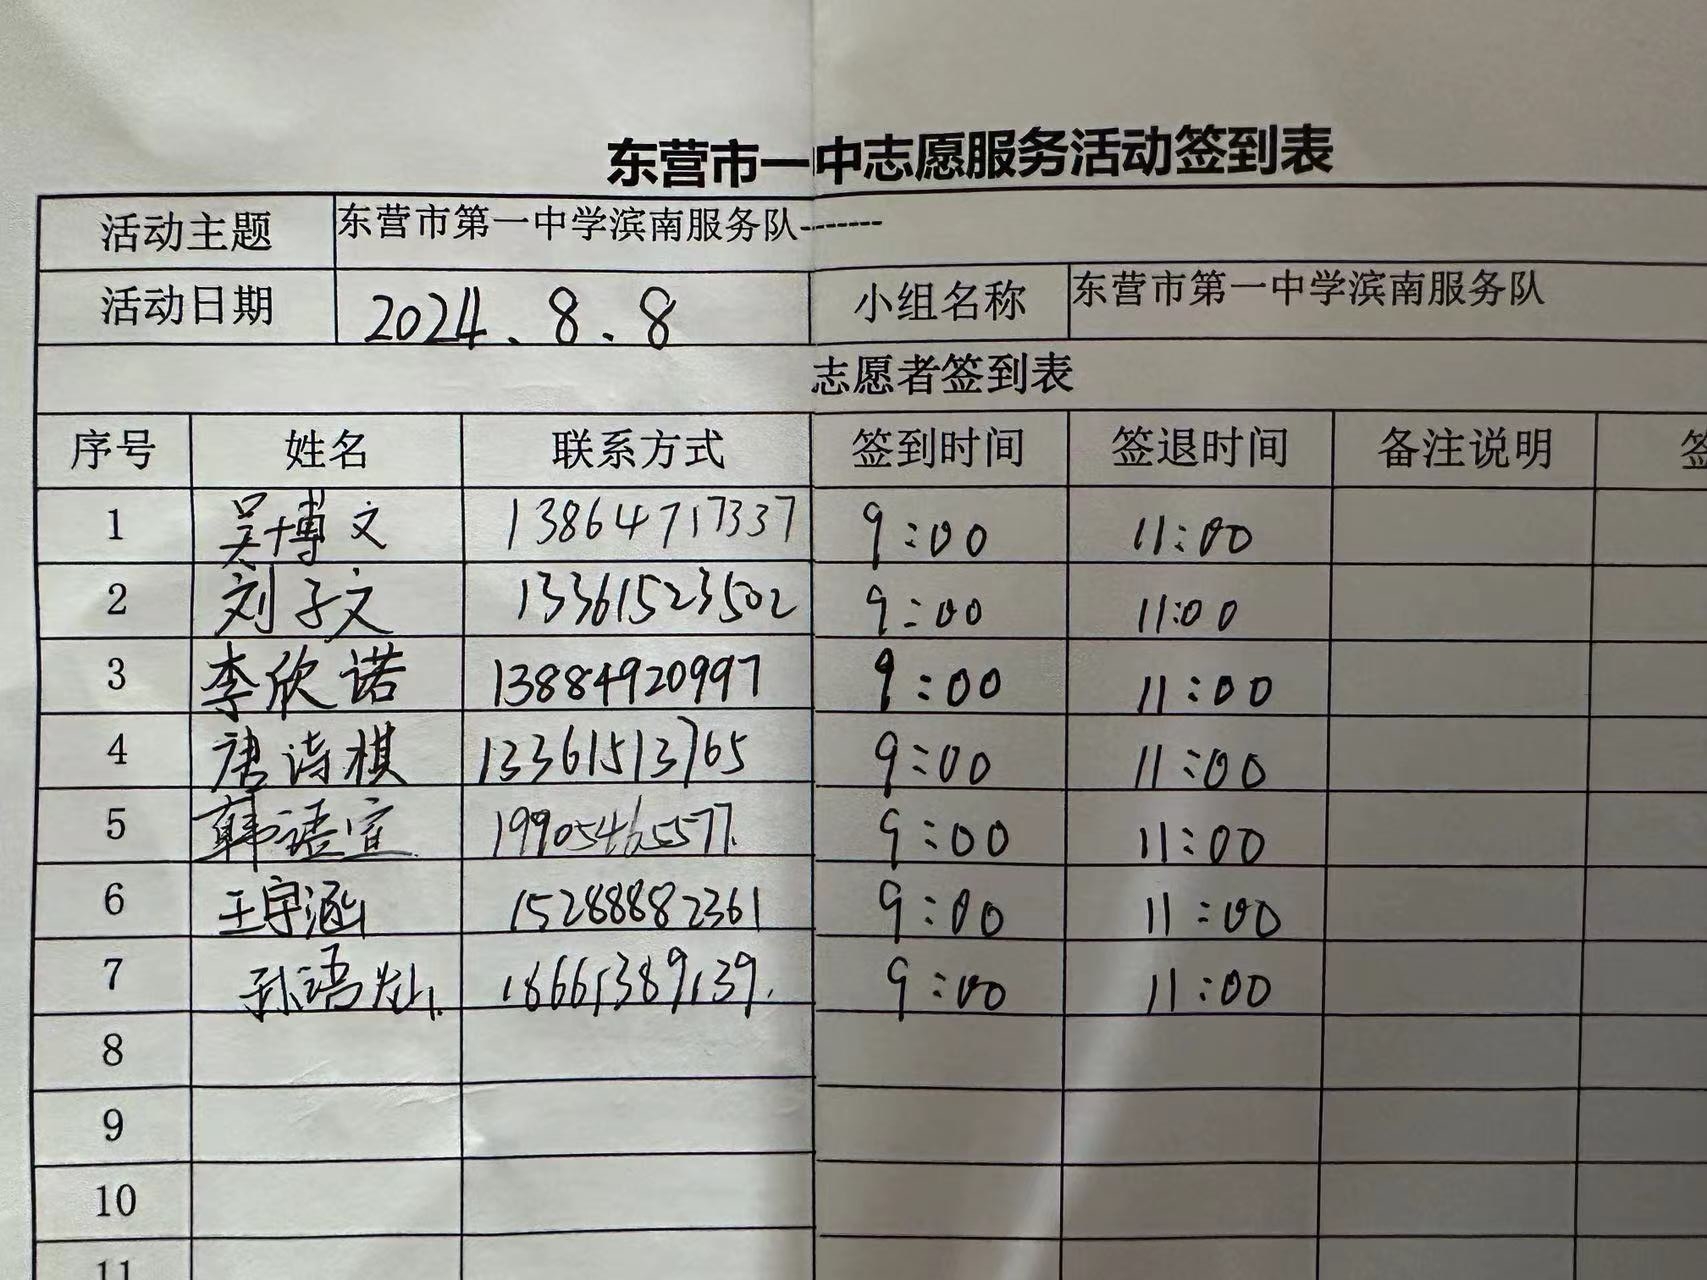 东营市一中志愿服务活动签到表
活动主题 东营市第一中学滨南服务队--------
活动日期 2024.8.8 小组名称 东营市第一中学滨南服务队
志愿者签到表
序号 姓名 联系方式 签到时间 签退时间 备注说明
1 吴博文 13864717337 9:00 11:00
2 刘子文 13361523502 9:00 11:00
3 李欣诺 13884920997 9:00 11:00
4 唐诗棋 13361513765 9:00 11:00
5 韩语宣 19905465577. 9:00 11:00
6 王宇涵 15288882361 9:00 11:00
7 孙语灿. 18661389139. 9:00 11:00
8
9
10
11